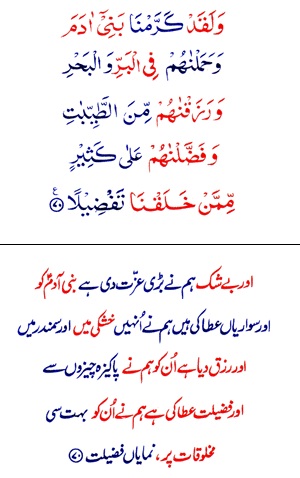 وَلَقَدْ كَرَّمْنَا بَنِيْٓ اٰدَمَ
وَحَمَلْنٰهُمْ فِي الْبَرِّ وَ الْبَحْرِ
وَ رَزَقْنٰهُمْ مِّنَ الطَّيِّبٰتِ
وَ فَضَّلْنٰهُمْ عَلٰى كَثِيْرٍ
مِّمَّنْ خَلَقْنَا تَفْضِيْلًا ۧ۷۰
اور بے شک ہم نے بڑی عزّت دی ہے بنی آدمؑ کو
اور سواریاں عطا کی ہیں ہم نے اُنہیں خشکی میں اور سمندر میں
اور رزق دیا ہے اُن کو ہم نے پاکیزہ چیزوں سے
اور فضیلت عطا کی ہے ہم نے اُن کو بہت سی
مخلوقات پر، نمایاں فضیلت ۷۰